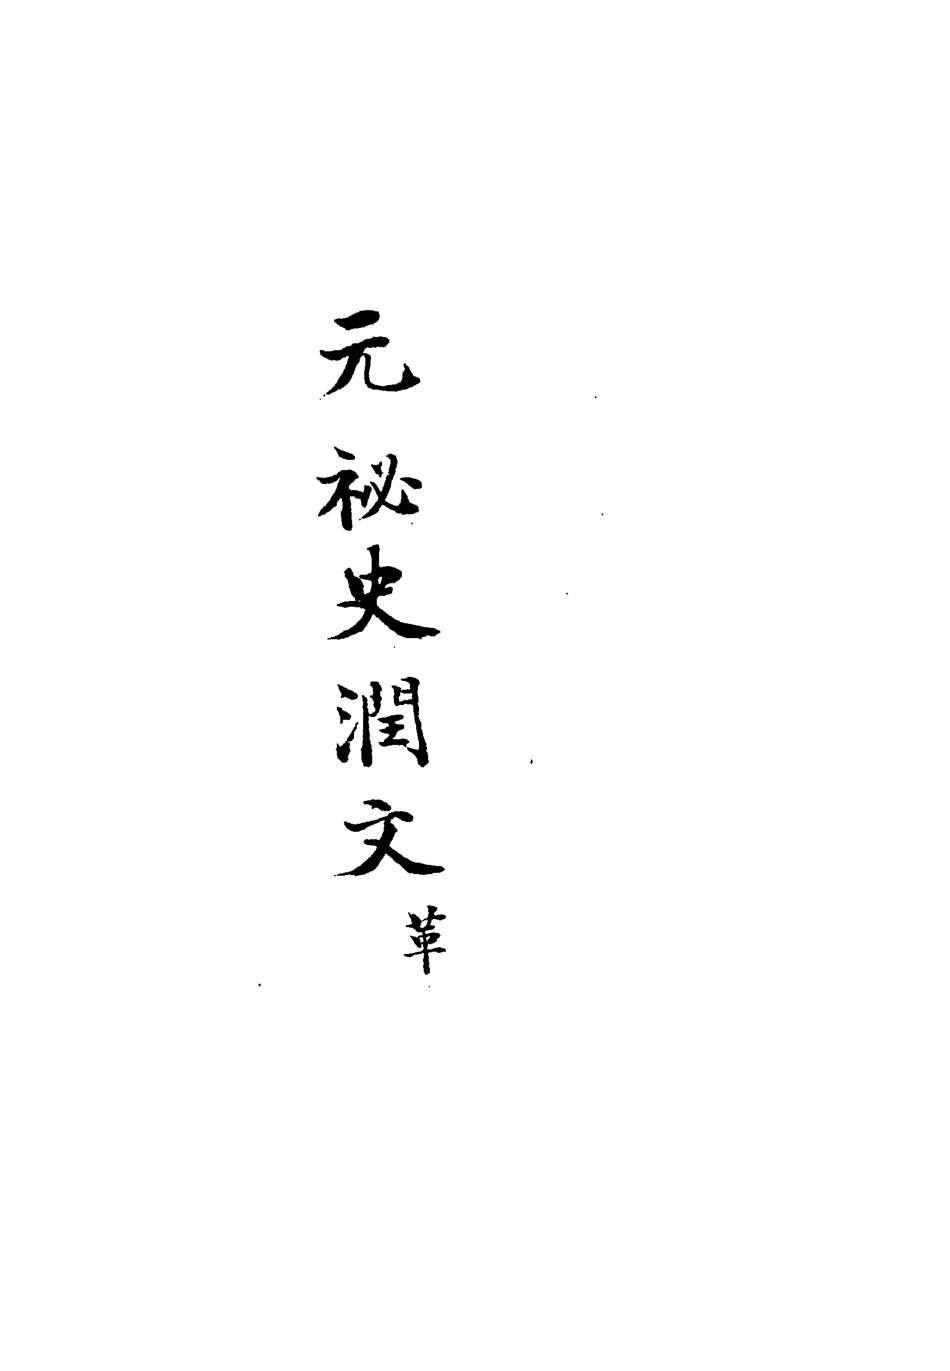 元祕史潤文
革